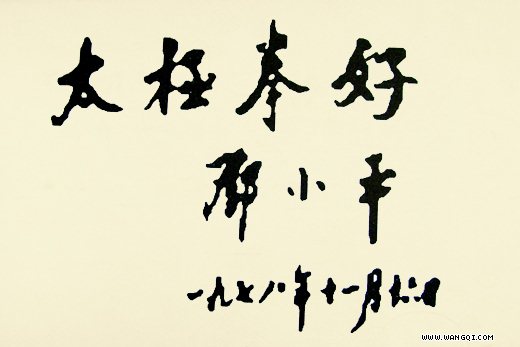 太极拳好
邓小平
一九七八年十一月十六日
WWW.WANGQI.COM